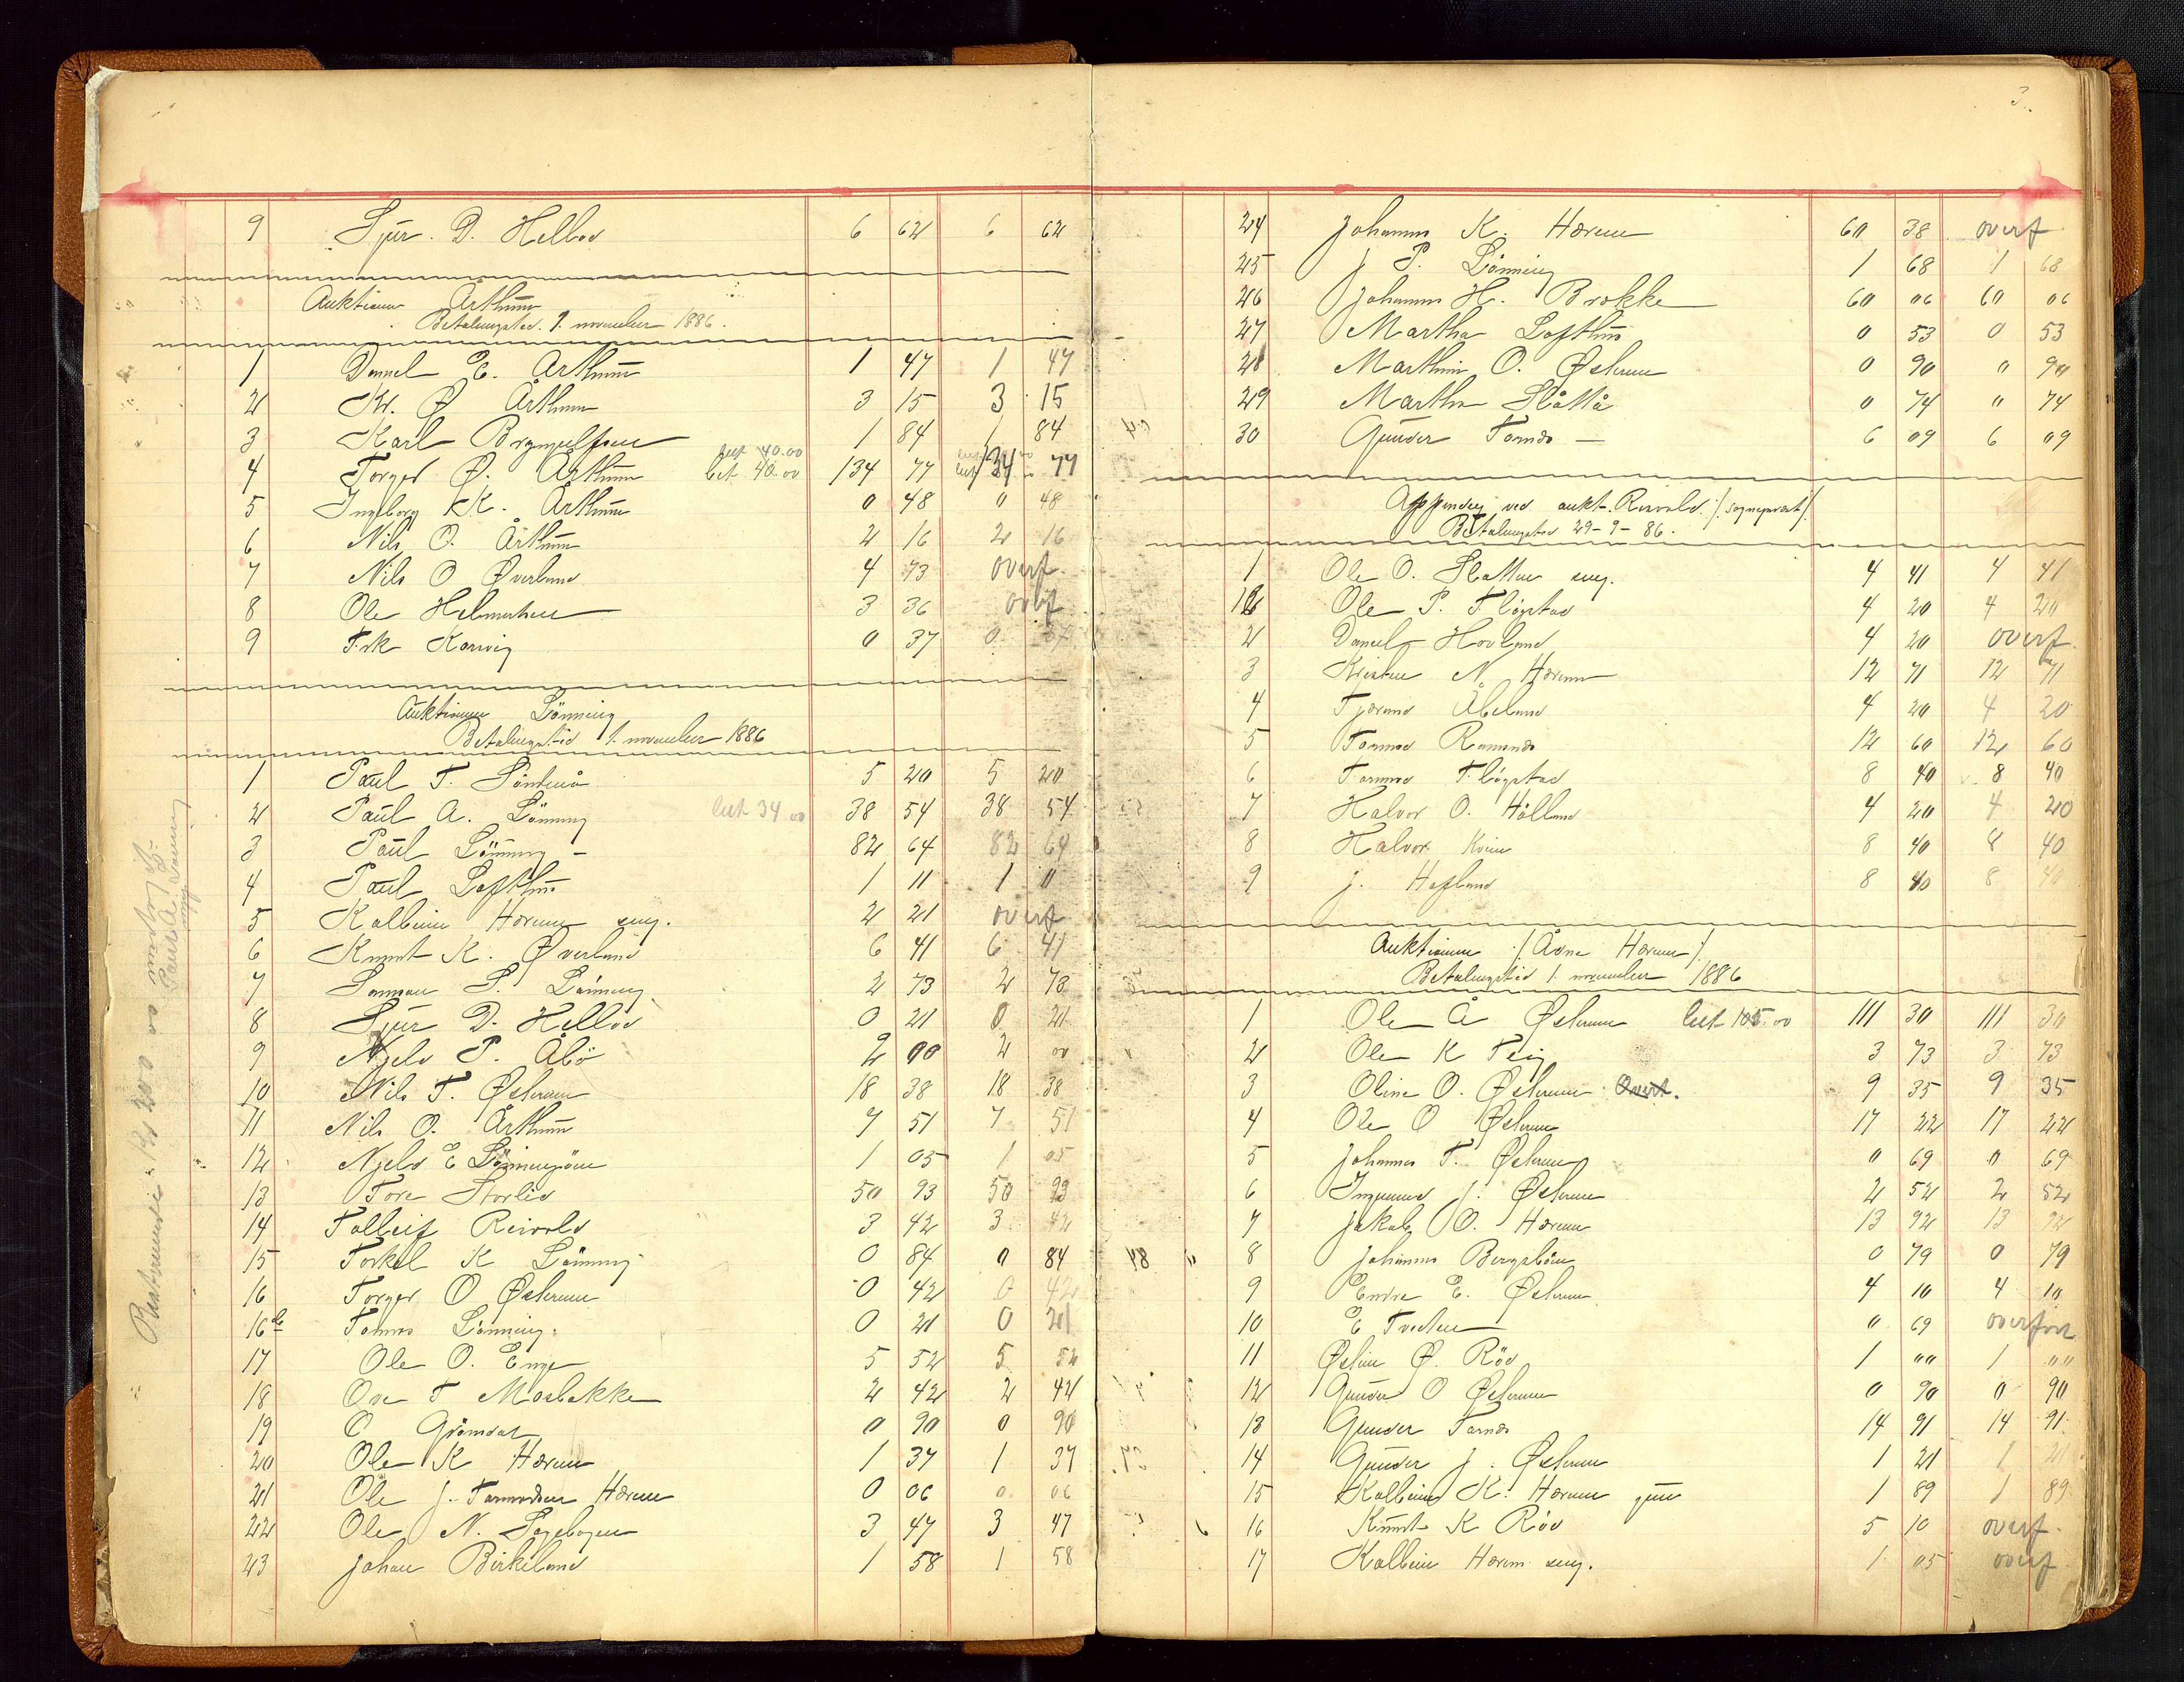 9 Sjur. D. Hellod 6 62 6 62
Auktionen Århuun
Betalingstid. 1. november 1886.
1 Daniel E. Århuun 1 47 1 47
2 Kr. Ø Århuun 3 15 3 15
3 Karl Brynjulfsen 1 84 1 84
bet 40.00
4 Torger Ø. Århuun bet 40.00 134 77 134 77
5 Ingeborg K. Århuun 0 48 0 48
6 Nils O. Århuun 2 16 2 16
7 Nils O Øverland 4 73 overf.
8 Ole Helmichsen 3 36 overf
9 Frk Karvig 0 37 0 37
Auktionen Lönning
Betalingstid 1. november 1886
1 Paul T. 5 20 5 20
2 Paul A. Lönning bet 34 00 38 54 38 54
3 Paul Lönning - 82 64 82 64
4 Paul Lofthus 1 11 1 11
5 Kolbein Hæreim sny. 2 21 overf
6 Knut K. Øverland 6 41 6 41
7 Samson S. Lönning 2 73 2 73
8 Sjur D. Hellod 0 21 0 21
9 Njeld P. Åbö 2 00 2 00
10 Nils T. Østerum 18 38 18 38
11 Nils O. Århuun 7 51 7 51
12 Njeld E 1 05 1 05
13 Tore Storlid 50 93 50 93
14 Tolleif Reivold 3 42 3 42
15 Torkel K Lönning 0 84 0 84
16 Torger O Østerum 0 42 0 42
16b Tomas Lönning. 0 21 0 21
17 Ole O. Enge 5 52 5 52
18 Ove T Mosbakke 2 42 2 42
19 O Grömdal 0 90 0 90
20 Ole K Hæreim 1 37 1 37
21 Ole J. Tarmodsen Hæreim 0 06 0 06
22 Ole N. Sagebogen 3 47 3 47
23 Johan Birkeland 1 58 1 58
Paul A. Lönning
3.
24 Johannes K. Hæreim 60 38 overf
25 J P. Lönning 1 68 1 68
26 Johannes H. Brokke 60 06 60 06
27 Martha Lofthus 0 53 0 53
28 Marthin O. Østerum 0 90 " 90
29 Martha Slåttå 0 74 " 74
30 Gunder Tarmdo — 6 09 6 09
ved aukt. Reivold /: sogneprest /:
Betalingstid 29-9-86.
1 Ole O. Slotten sny. 4 41 4 41
1b Ole P. Fløgstad 4 20 4 20
2 Daniel Hovland 4 20 overf.
3 Kristen N. Hæreim 12 71 12 71
4 Tjerand Åbeland 4 20 4 20
5 Tormod Ramndo 12 60 12 60
6 Tormod Fløgstad 8 40 8 40
7 Halvor O. Hålland 4 20 4 20
8 Halvor Kvien 8 40 8 40
9 J. Hafland 8 40 8 40
Auktionen /: Ådne Hæreim /:
Betalingstid 1. november 1886
1 Ole Å Østerum bet 105.00 111 30 111 30
2 Ole K Teig 3 73 3 73
3 Oline O. Østerum Overf. 9 35 9 35
4 Ole O Østerum 17 22 17 22
5 Johannes T. Østerum 0 69 0 69
6 Ingemund J. Østerum 2 52 2 52
7 Jakob O. Hæreim 13 92 13 92
8 Johannes Bergsböen 0 79 0 79
9 Endre E. Østerum 4 10 4 10
10 E Tveiten 0 69 overfört
11 Østen Ø. Röd 1 00 1 00
12 Gunder O Østerum 0 90 0 90
13 Gunder Tarmdo 14 91 14 91
14 Gunder J. Østerum 1 21 1 21
15 Kolbein K. Hæreim yun 1 89 1 89
16 Knut K Röd 5 10 overf.
17 Kolbein Hæreim sny. 1 05 overf